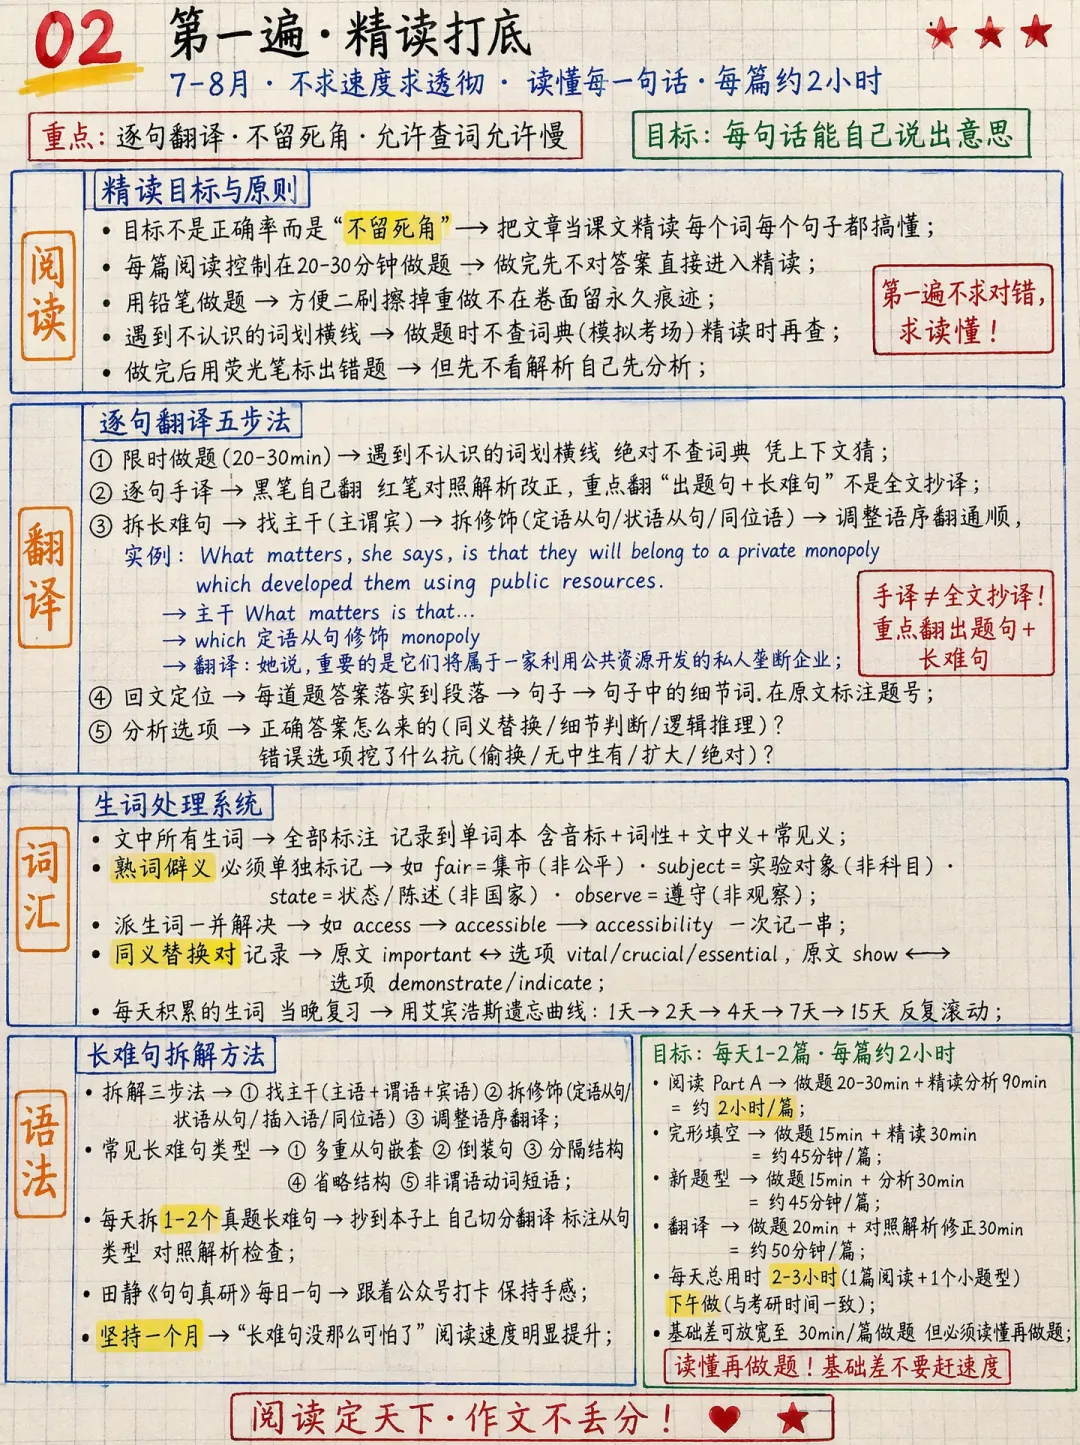 02 第一遍·精读打底
7-8月 · 不求速度求透彻 · 读懂每一句话·每篇约2小时
重点：逐句翻译·不留死角·允许查词允许慢
目标：每句话能自己说出意思
阅读
精读目标与原则
• 目标不是正确率而是“不留死角”→ 把文章当课文精读 每个词每个句子都搞懂；
• 每篇阅读控制在20-30分钟做题 → 做完先不对答案直接进入精读；
• 用铅笔做题 → 方便二刷擦掉重做不在卷面留永久痕迹；
• 遇到不认识的词划横线 → 做题时不查词典(模拟考场)精读时再查；
• 做完后用荧光笔标出错题 → 但先不看解析自己先分析；
第一遍不求对错，
求读懂！
翻译
逐句翻译五步法
① 限时做题(20-30min)→遇到不认识的词划横线 绝对不查词典 凭上下文猜；
② 逐句手译 → 黑笔自己翻 红笔对照解析改正，重点翻“出题句+长难句”不是全文抄译；
③ 拆长难句 → 找主干(主谓宾)→ 拆修饰(定语从句/状语从句/同位语)→ 调整语序翻通顺，
实例：What matters, she says, is that they will belong to a private monopoly
which developed them using public resources.
→ 主干 What matters is that...
→ which 定语从句修饰 monopoly
→ 翻译：她说，重要的是它们将属于一家利用公共资源开发的私人垄断企业；
④ 回文定位 → 每道题答案落实到段落 → 句子 → 句子中的细节词.在原文标注题号；
⑤ 分析选项 → 正确答案怎么来的(同义替换/细节判断/逻辑推理)？
错误选项挖了什么抗(偷换/无中生有/扩大/绝对)？
手译≠全文抄译！
重点翻出题句+
长难句
词汇
生词处理系统
• 文中所有生词 → 全部标注 记录到单词本 含音标+词性+文中义+常见义；
• 熟词僻义 必须单独标记 → 如 fair=集市(非公平) · subject=实验对象(非科目) ·
state=状态/陈述(非国家) · observe=遵守(非观察)；
• 派生词一并解决 → 如 access → accessible → accessibility 一次记一串；
• 同义替换对 记录 → 原文 important ↔ 选项 vital/crucial/essential，原文 show ⟷
选项 demonstrate/indicate；
• 每天积累的生词 当晚复习 → 用艾宾浩斯遗忘曲线：1天→2天→4天→7天→15天 反复滚动；
语法
长难句拆解方法
• 拆解三步法 → ① 找主干(主语+谓语+宾语) ② 拆修饰(定语从句/
状语从句/插入语/同位语) ③ 调整语序翻译；
• 常见长难句类型 → ① 多重从句嵌套 ② 倒装句 ③ 分隔结构
④ 省略结构 ⑤ 非谓语动词短语；
• 每天拆 1-2个 真题长难句 → 抄到本子上 自己切分翻译 标注从句
类型 对照解析检查；
• 田静《句句真研》每日一句 → 跟着公众号打卡 保持手感；
• 坚持一个月 →“长难句没那么可怕了”阅读速度明显提升；
目标：每天1-2篇·每篇约2小时
• 阅读 Part A → 做题20-30min+精读分析90min
= 约 2小时/篇；
• 完形填空 → 做题15min + 精读30min
= 约45分钟/篇；
• 新题型 → 做题15min + 分析30min
= 约45分钟/篇；
• 翻译 → 做题20min + 对照解析修正30min
= 约50分钟/篇；
• 每天总用时 2-3小时(1篇阅读+1个小题型)
下午做(与考研时间一致)；
• 基础差可放宽至 30min/篇做题 但必须读懂再做题；
读懂再做题！基础差不要赶速度
阅读定天下·作文不丢分！